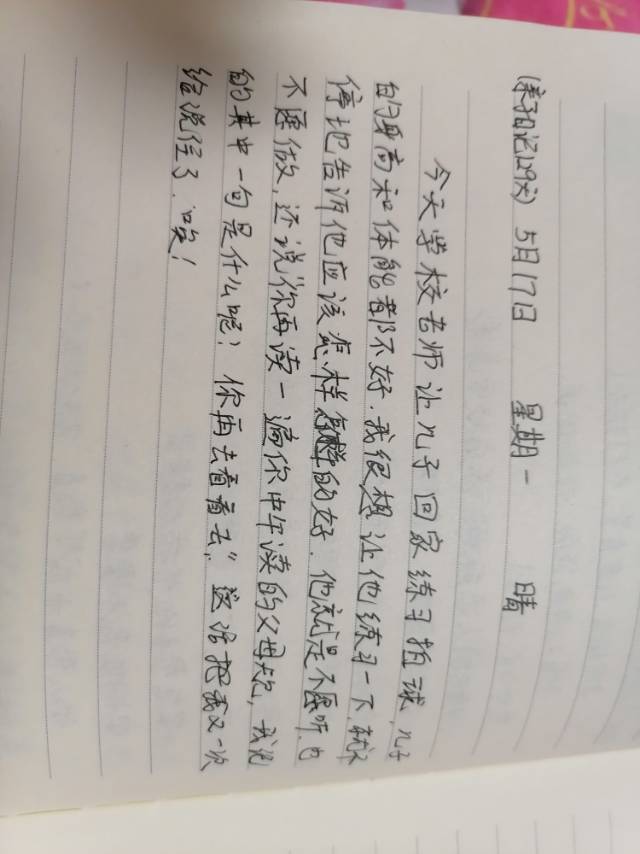 (亲子日记129天) 5月17日 星期一 晴
今天学校老师让儿子回家练习拍球,儿子
的身高和体能都不好.我很想让他练习一下,就不
停地告诉他应该怎样的好.他就是不愿听,也
不愿做,还说“你再读一遍你中午读的父母规,我说
的其中一句是什么呢?你再去看看去.”这话把我又一次
给说住了.唉!